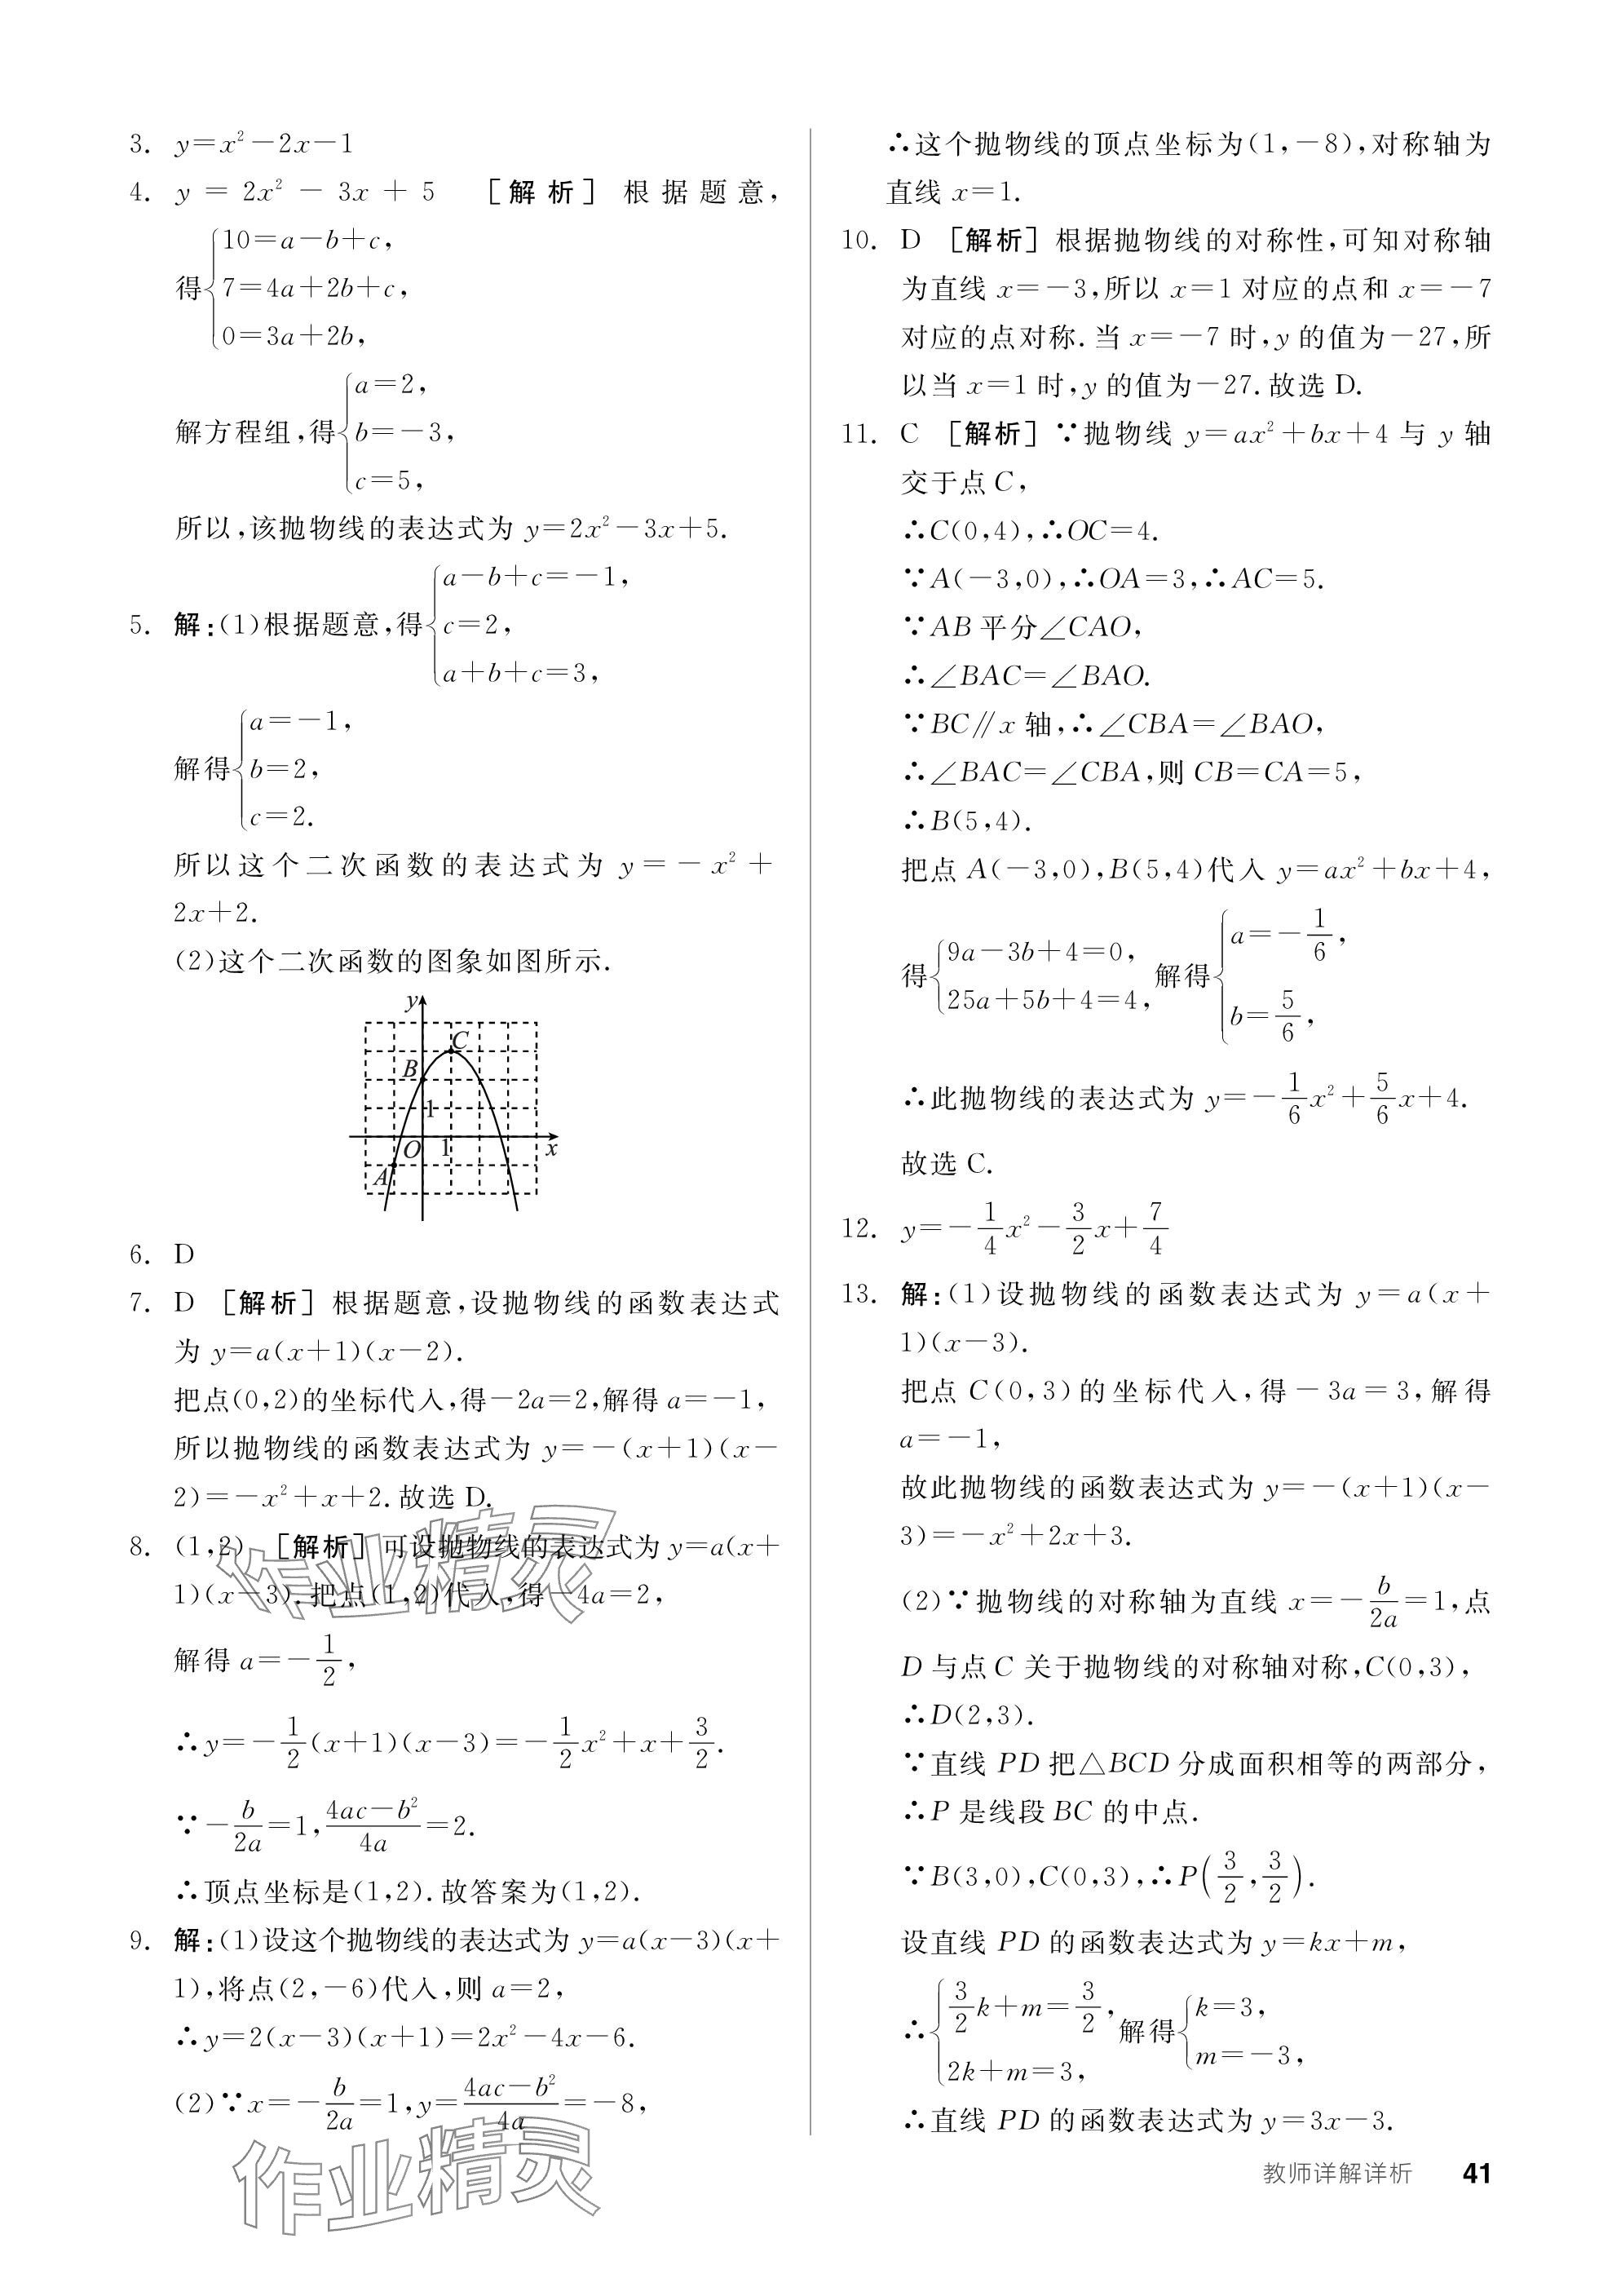 3. y=x²-2x-1
4. y=2x²-3x+5 [解析]根据题意,
得{10=a-b+c,
7=4a+2b+c,
0=3a+2b,
解方程组,得{a=2,
b=-3,
c=5,
所以,该抛物线的表达式为 y=2x²-3x+5.
5. 解:(1)根据题意,得{a-b+c=-1,
c=2,
a+b+c=3,
解得{a=-1,
b=2,
c=2.
所以这个二次函数的表达式为 y=-x²+
2x+2.
(2)这个二次函数的图象如图所示.
y
C
B
1
O 1 x
A
6. D
7. D [解析]根据题意,设抛物线的函数表达式
为 y=a(x+1)(x-2).
把点(0,2)的坐标代入,得-2a=2,解得 a=-1,
所以抛物线的函数表达式为 y=-(x+1)(x-
2)=-x²+x+2.故选 D.
8. (1,2) [解析]可设抛物线的表达式为 y=a(x+
1)(x-3).把点(1,2)代入,得-4a=2,
解得 a=-1/2,
∴y=-1/2(x+1)(x-3)=-1/2x²+x+3/2.
∵-b/2a=1,(4ac-b²)/4a=2.
∴顶点坐标是(1,2).故答案为(1,2).
9. 解:(1)设这个抛物线的表达式为 y=a(x-3)(x+
1),将点(2,-6)代入,则 a=2,
∴y=2(x-3)(x+1)=2x²-4x-6.
(2)∵x=-b/2a=1,y=(4ac-b²)/4a=-8,
∴这个抛物线的顶点坐标为(1,-8),对称轴为
直线 x=1.
10. D [解析]根据抛物线的对称性,可知对称轴
为直线 x=-3,所以 x=1 对应的点和 x=-7
对应的点对称.当 x=-7 时,y 的值为-27,所
以当 x=1 时,y 的值为-27.故选 D.
11. C [解析]∵抛物线 y=ax²+bx+4 与 y 轴
交于点 C,
∴C(0,4),∴OC=4.
∵A(-3,0),∴OA=3,∴AC=5.
∵AB 平分∠CAO,
∴∠BAC=∠BAO.
∵BC∥x 轴,∴∠CBA=∠BAO,
∴∠BAC=∠CBA,则 CB=CA=5,
∴B(5,4).
把点 A(-3,0),B(5,4)代入 y=ax²+bx+4,
得{9a-3b+4=0,
25a+5b+4=4, 解得{a=-1/6,
b=5/6,
∴此抛物线的表达式为 y=-1/6x²+5/6x+4.
故选 C.
12. y=-1/4x²-3/2x+7/4
13. 解:(1)设抛物线的函数表达式为 y=a(x+
1)(x-3).
把点 C(0,3)的坐标代入,得-3a=3,解得
a=-1,
故此抛物线的函数表达式为 y=-(x+1)(x-
3)=-x²+2x+3.
(2)∵抛物线的对称轴为直线 x=-b/2a=1,点
D 与点 C 关于抛物线的对称轴对称,C(0,3),
∴D(2,3).
∵直线 PD 把△BCD 分成面积相等的两部分,
∴P 是线段 BC 的中点.
∵B(3,0),C(0,3),∴P(3/2,3/2).
设直线 PD 的函数表达式为 y=kx+m,
∴{3/2k+m=3/2,
2k+m=3, 解得{k=3,
m=-3,
∴直线 PD 的函数表达式为 y=3x-3.
教师详解详析 41
作业精灵
作业精灵